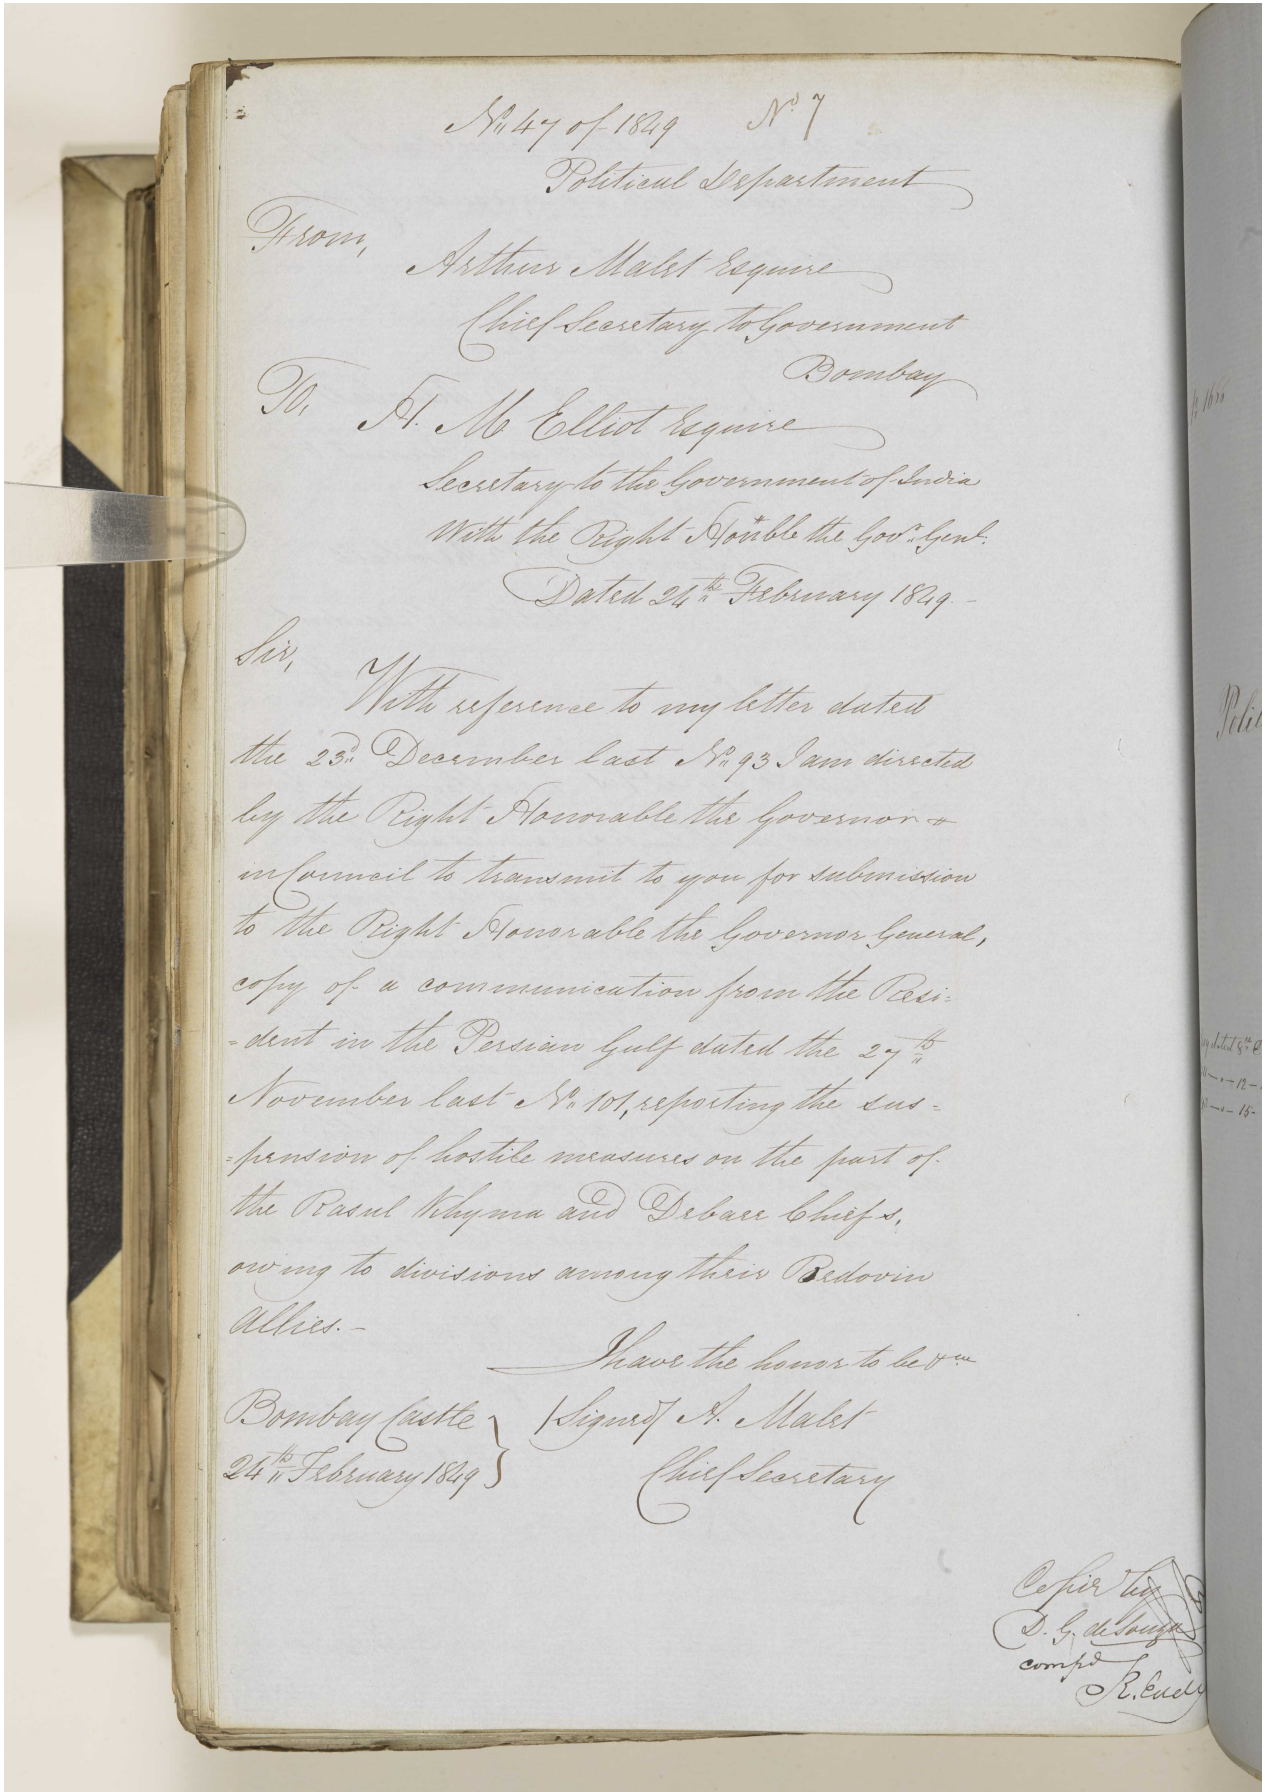 No. 47 of 1849 No. 7
Political Department
From,
Arthur Malet Esquire
Chief Secretary to Government
Bombay
To,
H. M Elliot Esquire
Secretary to the Government of India
With the Right Honble the Govr. Genl.
Dated 24th February 1849. -
Sir,
With reference to my letter dated
the 23d. December last No. 93 I am directed
by the Right Honorable the Governor
in Council to transmit to you for submission
to the Right Honorable the Governor General,
copy of a communication from the Resi=
=dent in the Persian Gulf dated the 27th
November last No. 101, reporting the sus=
=pension of hostile measures on the part of
the Rasul Khyma and Debaee Chiefs,
owing to divisions among their Bedovin
allies. -
I have the honor to be &ca
Bombay Castle } /Signed/ A. Malet
24th February 1849 } Chief Secretary
Copied by
D. G. de Souza
compd
R.
12 1600
Polit
dated 8th
12 -
15 -